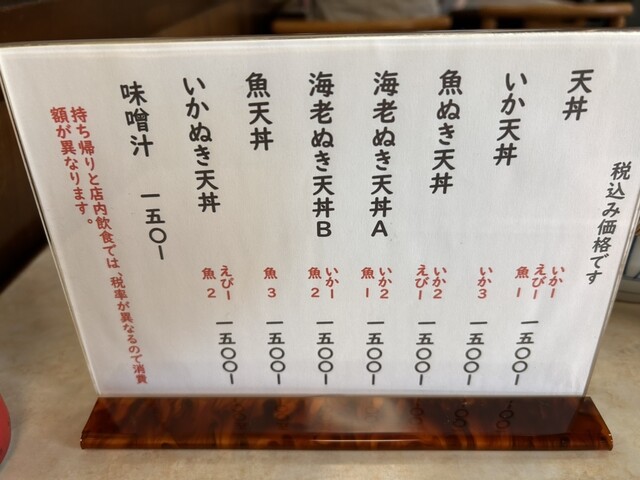 税込み価格です
天丼
いか一
えび一
魚一
一五〇〇ー
いか天丼
いか3
一五〇〇ー
魚ぬき天丼
いか2
えび一
一五〇〇ー
海老ぬき天丼A
いか2
魚一
一五〇〇ー
海老ぬき天丼B
いか一
魚2
一五〇〇ー
魚天丼
魚3
一五〇〇ー
いかぬき天丼
えび一
魚2
一五〇〇ー
味噌汁 一五〇ー
持ち帰りと店内飲食では、税率が異なるので消費
額が異なります。